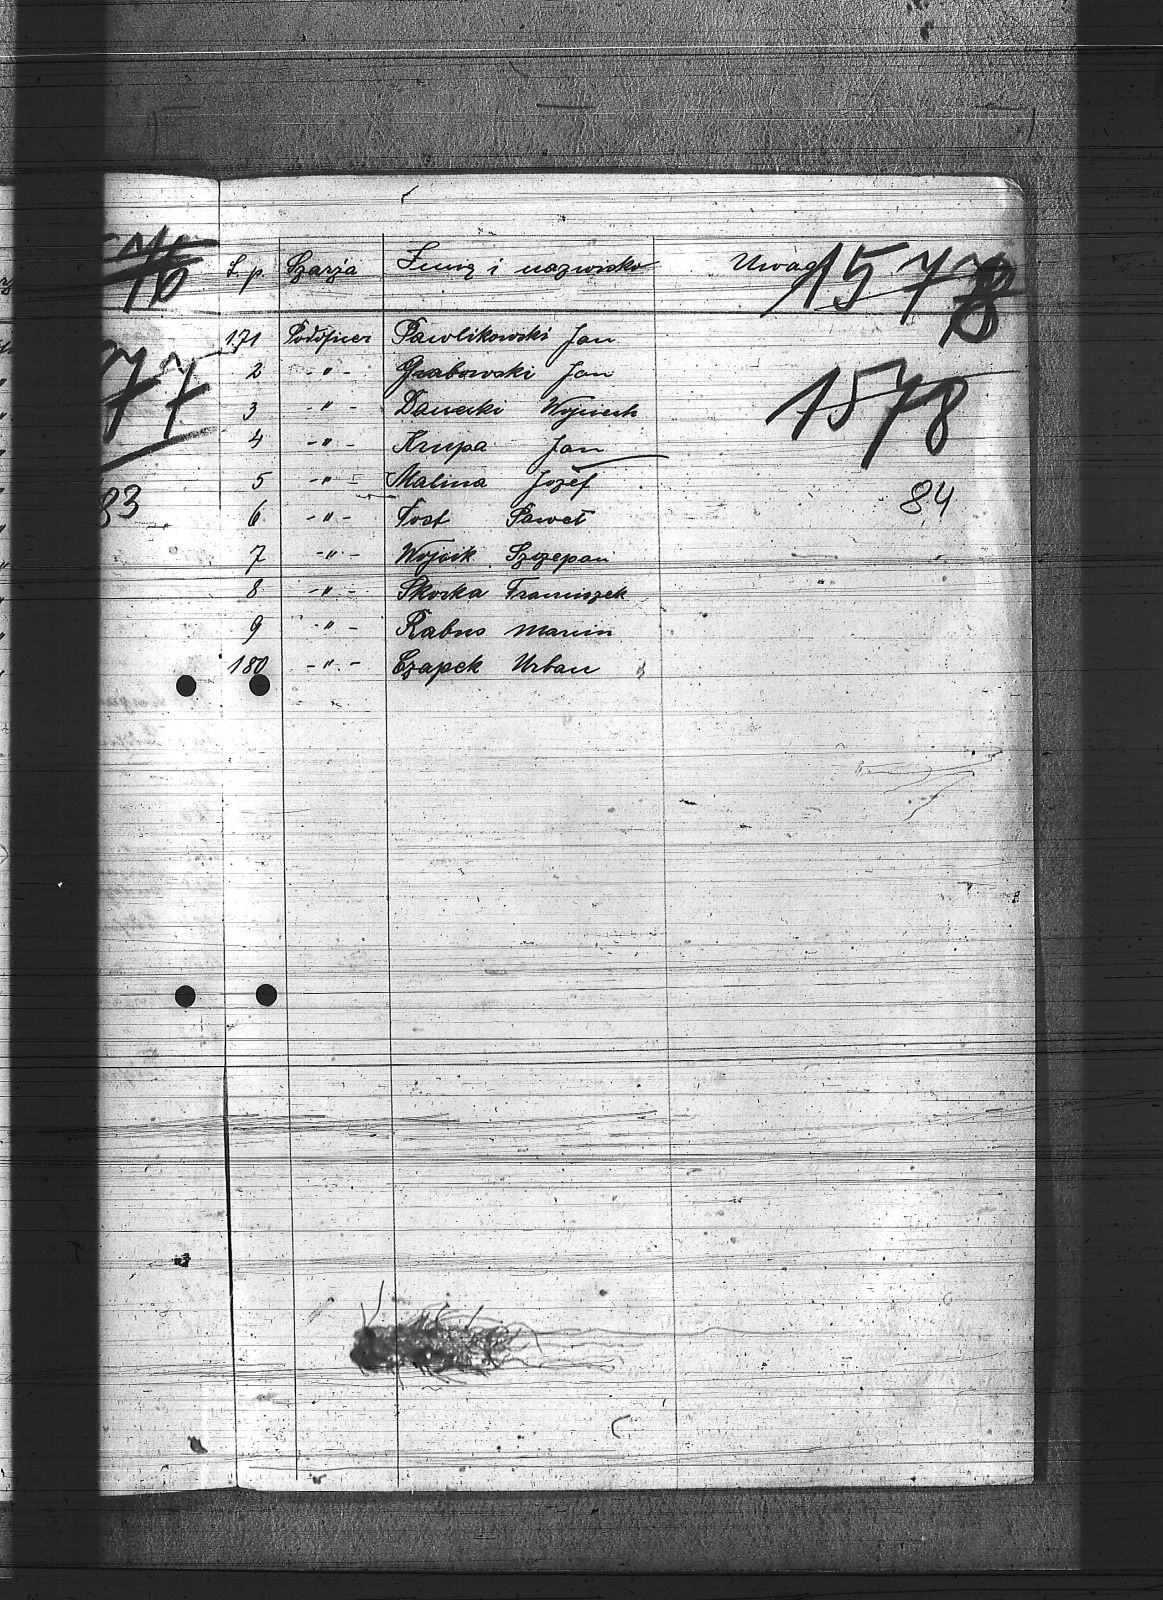 L.p. Szarża Imię i nazwisko Uwagi 1578
171 Podoficer Pawlikowski Jan
2 -"- Grabowski Jan
1578
3 -"- Danecki Wojciech
4 -"- Krupa Jan
5 -"- Malina Józef
84
83
6 -"- Tost Paweł
7 -"- Wojcik Szczepan
8 -"- Skorka Franciszek
9 -"- Rabus Marcin
180 -"- Czapek Urban